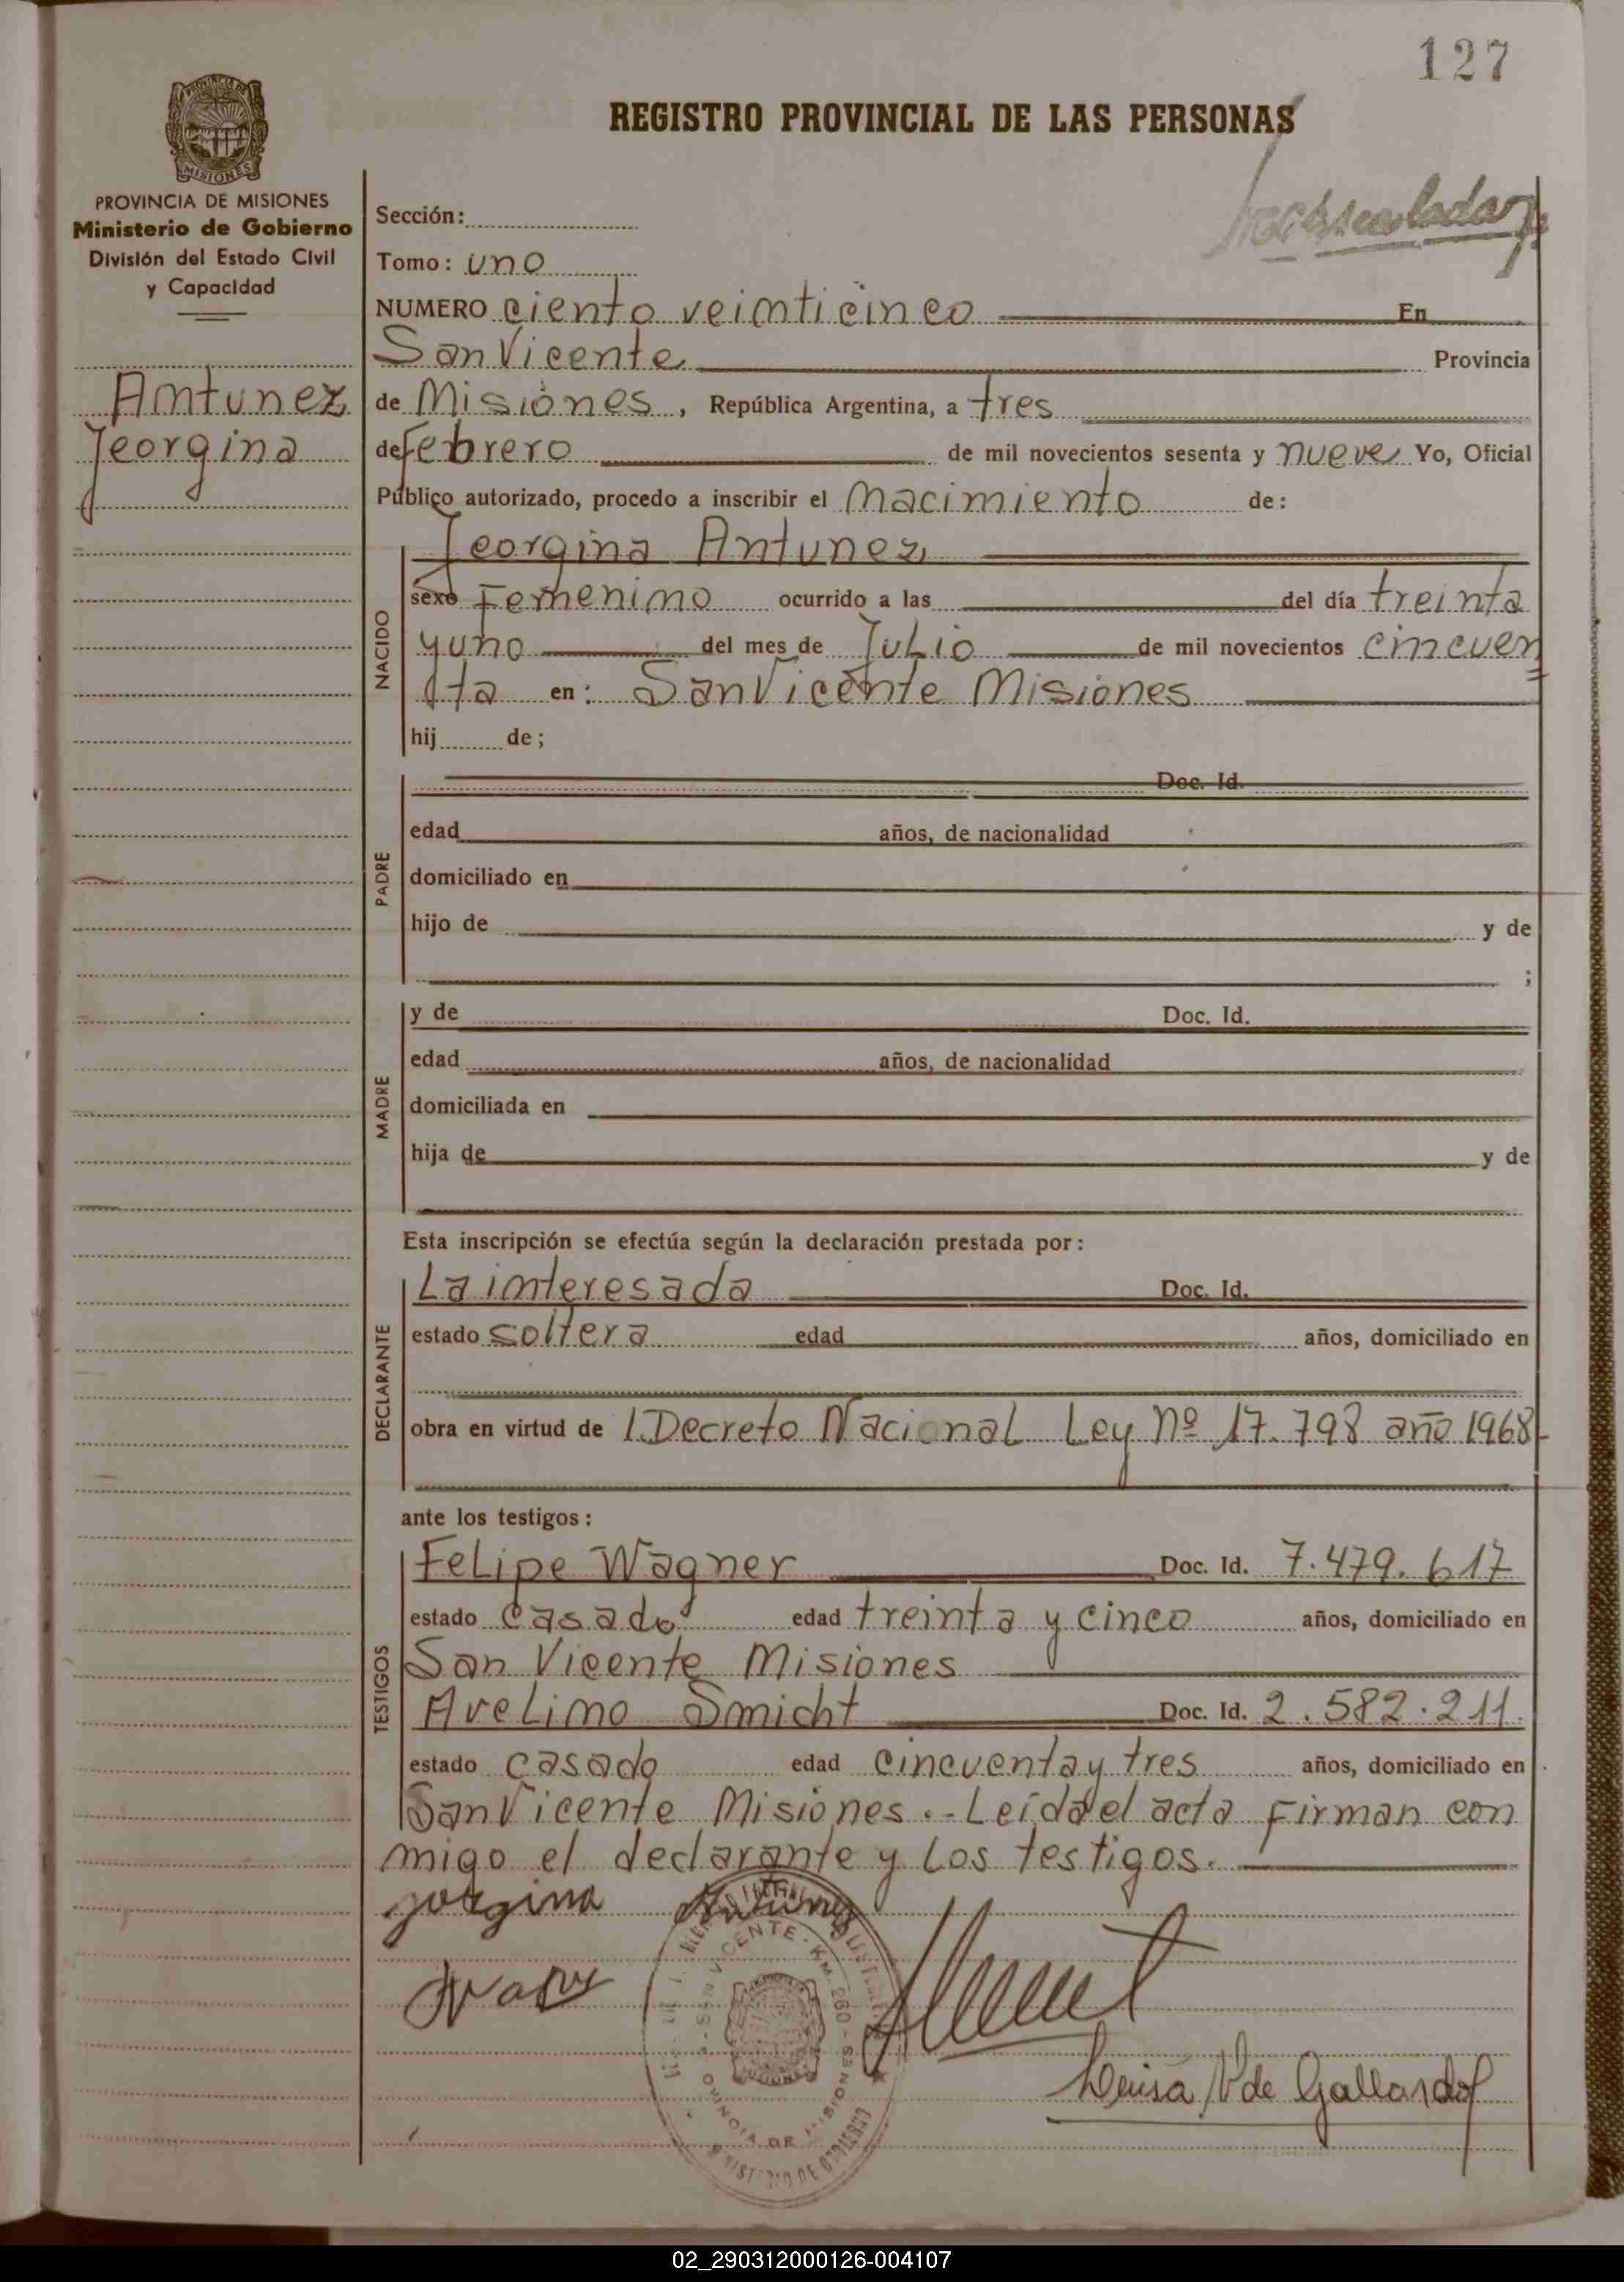 127
REGISTRO PROVINCIAL DE LAS PERSONAS
PROVINCIA DE
MISIONES
PROVINCIA DE MISIONES
Ministerio de Gobierno
División del Estado Civil
y Capacidad
Antunez
Jeorgina
Sección:
Tomo: uno
NUMERO ciento veinticinco En
San Vicente Provincia
de Misiones, República Argentina, a tres
de Febrero de mil novecientos sesenta y nueve Yo, Oficial
Público autorizado, procedo a inscribir el nacimiento de:
Jeorgina Antunez
NACIDO
sexo Femenino ocurrido a las del día treinta
y uno del mes de Julio de mil novecientos cincuen
ta en: San Vicente Misiones
hij de;
PADRE
Doc. Id.
edad años, de nacionalidad
domiciliado en
hijo de y de
;
MADRE
y de Doc. Id.
edad años, de nacionalidad
domiciliada en
hija de y de
Esta inscripción se efectúa según la declaración prestada por:
DECLARANTE
La interesada Doc. Id.
estado soltera edad años, domiciliado en
obra en virtud de l.Decreto Nacional Ley Nº 17.798 año 1968-
ante los testigos:
TESTIGOS
Felipe Wagner Doc. Id. 7.479.617
estado casado edad treinta y cinco años, domiciliado en
San Vicente Misiones
Avelino Smicht Doc. Id. 2.582.211.
estado casado edad cincuenta y tres años, domiciliado en
San Vicente Misiones.- Leída el acta firman con
migo el declarante y los testigos.
jorgina Antunez
SAN VICENTE - KM. 260 - MISIONES
MINISTERIO DE GOBIERNO
Luisa V de Gallardo
02_290312000126-004107